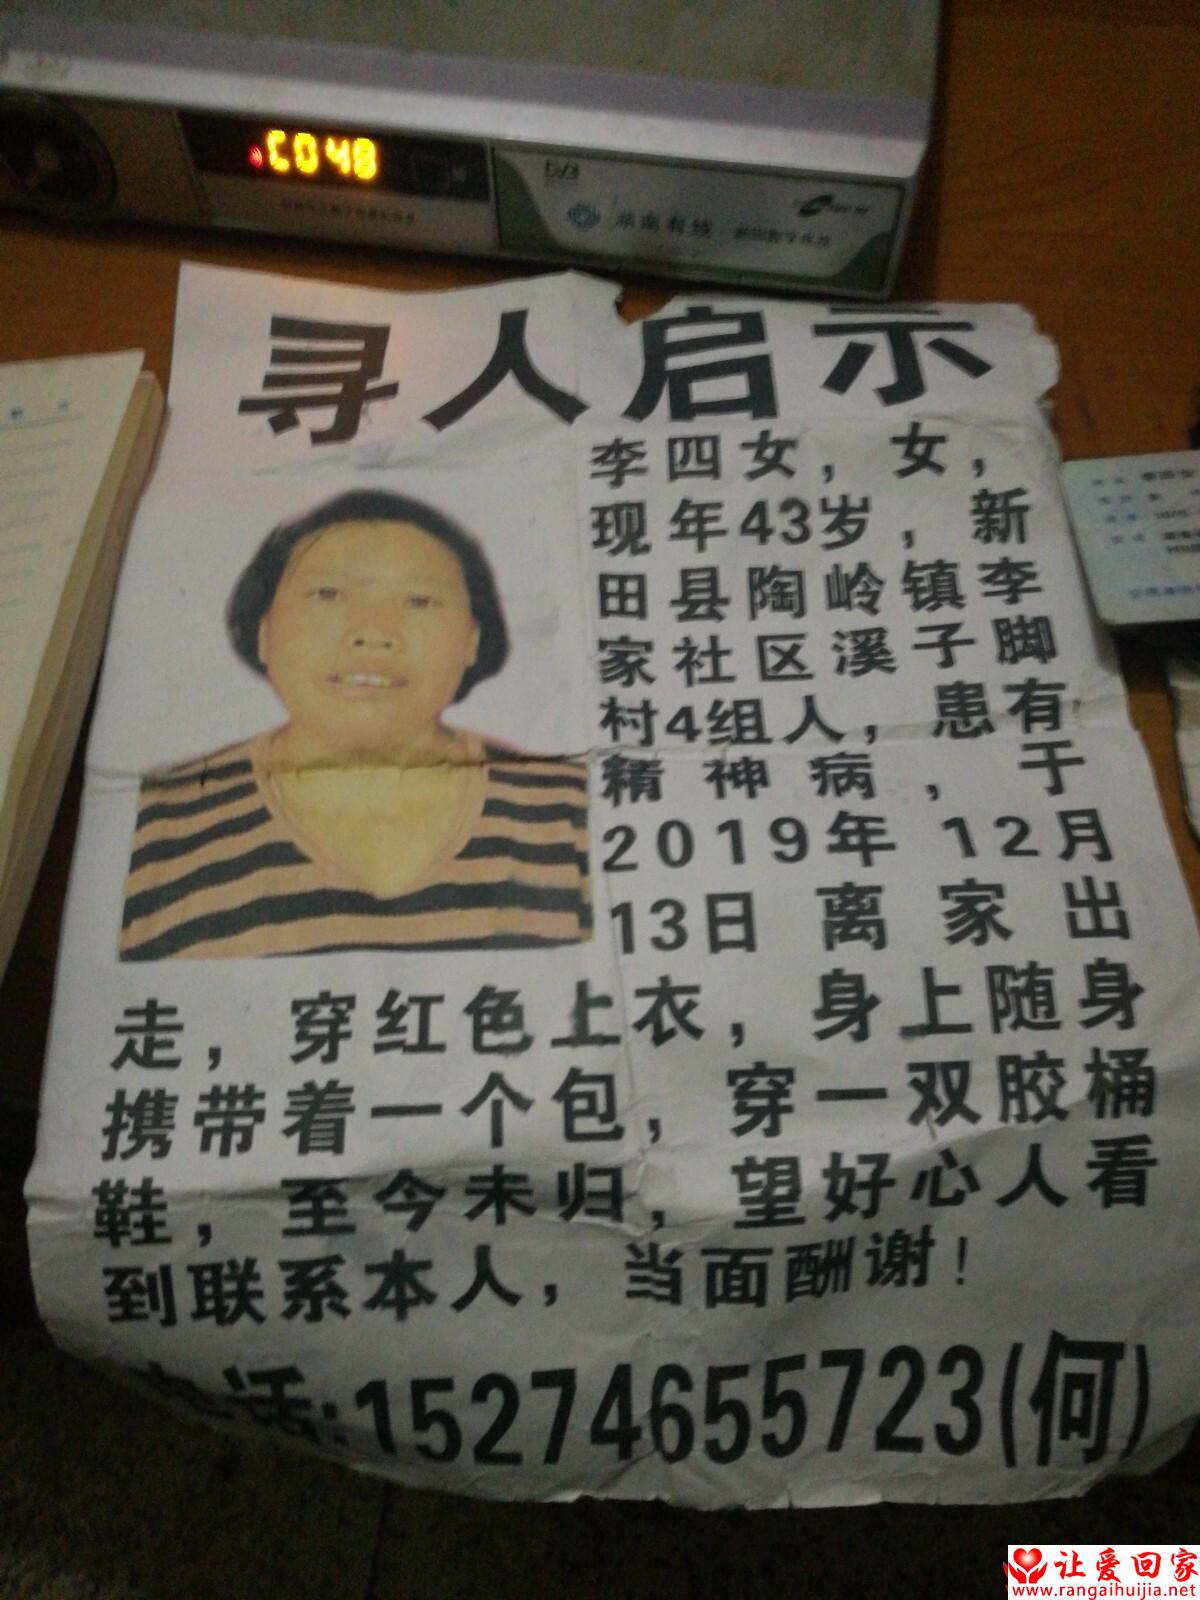 C048
DVB
湖南有线
寻人启示
李四女，女，
现年43岁，新
田县陶岭镇李
家社区溪子脚
村4组人，患有
精神病，于
2019年12月
13日离家出
走，穿红色上衣，身上随身
携带着一个包，穿一双胶桶
鞋，至今未归，望好心人看
到联系本人，当面酬谢！
电话:15274655723(何)
让爱回家
www.rangaihuijia.net